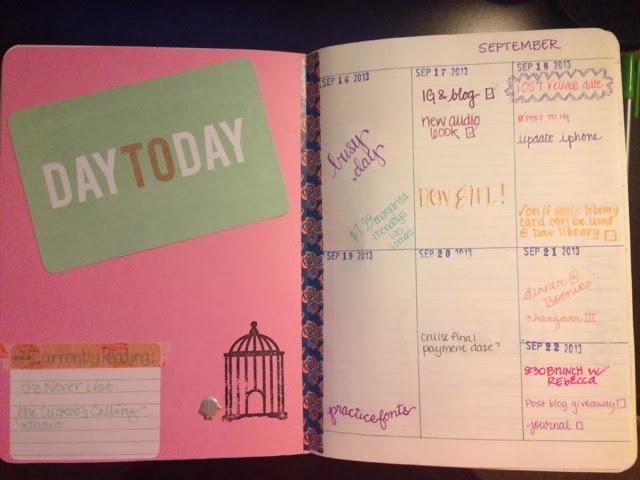 DAYTODAY
Currently Reading:
the Never List
the Cuckoo's Calling
audio
SEPTEMBER
SEP 16 2013
busy
day
$7.99 margarita
mondays
las
lomas
SEP 17 2013
IG & blog
new audio
book
new girl!
SEP 18 2013
iOS 7 release date
POST TO IG
update iphone
on if library
card can be used
@ Dav library
SEP 19 2013
practice fonts
SEP 20 2013
cruise final
payment date?
SEP 21 2013
dinner @
Boonies
hangover III
SEP 22 2013
BRUNCH w/
Rebecca
Post blog giveaway
journal